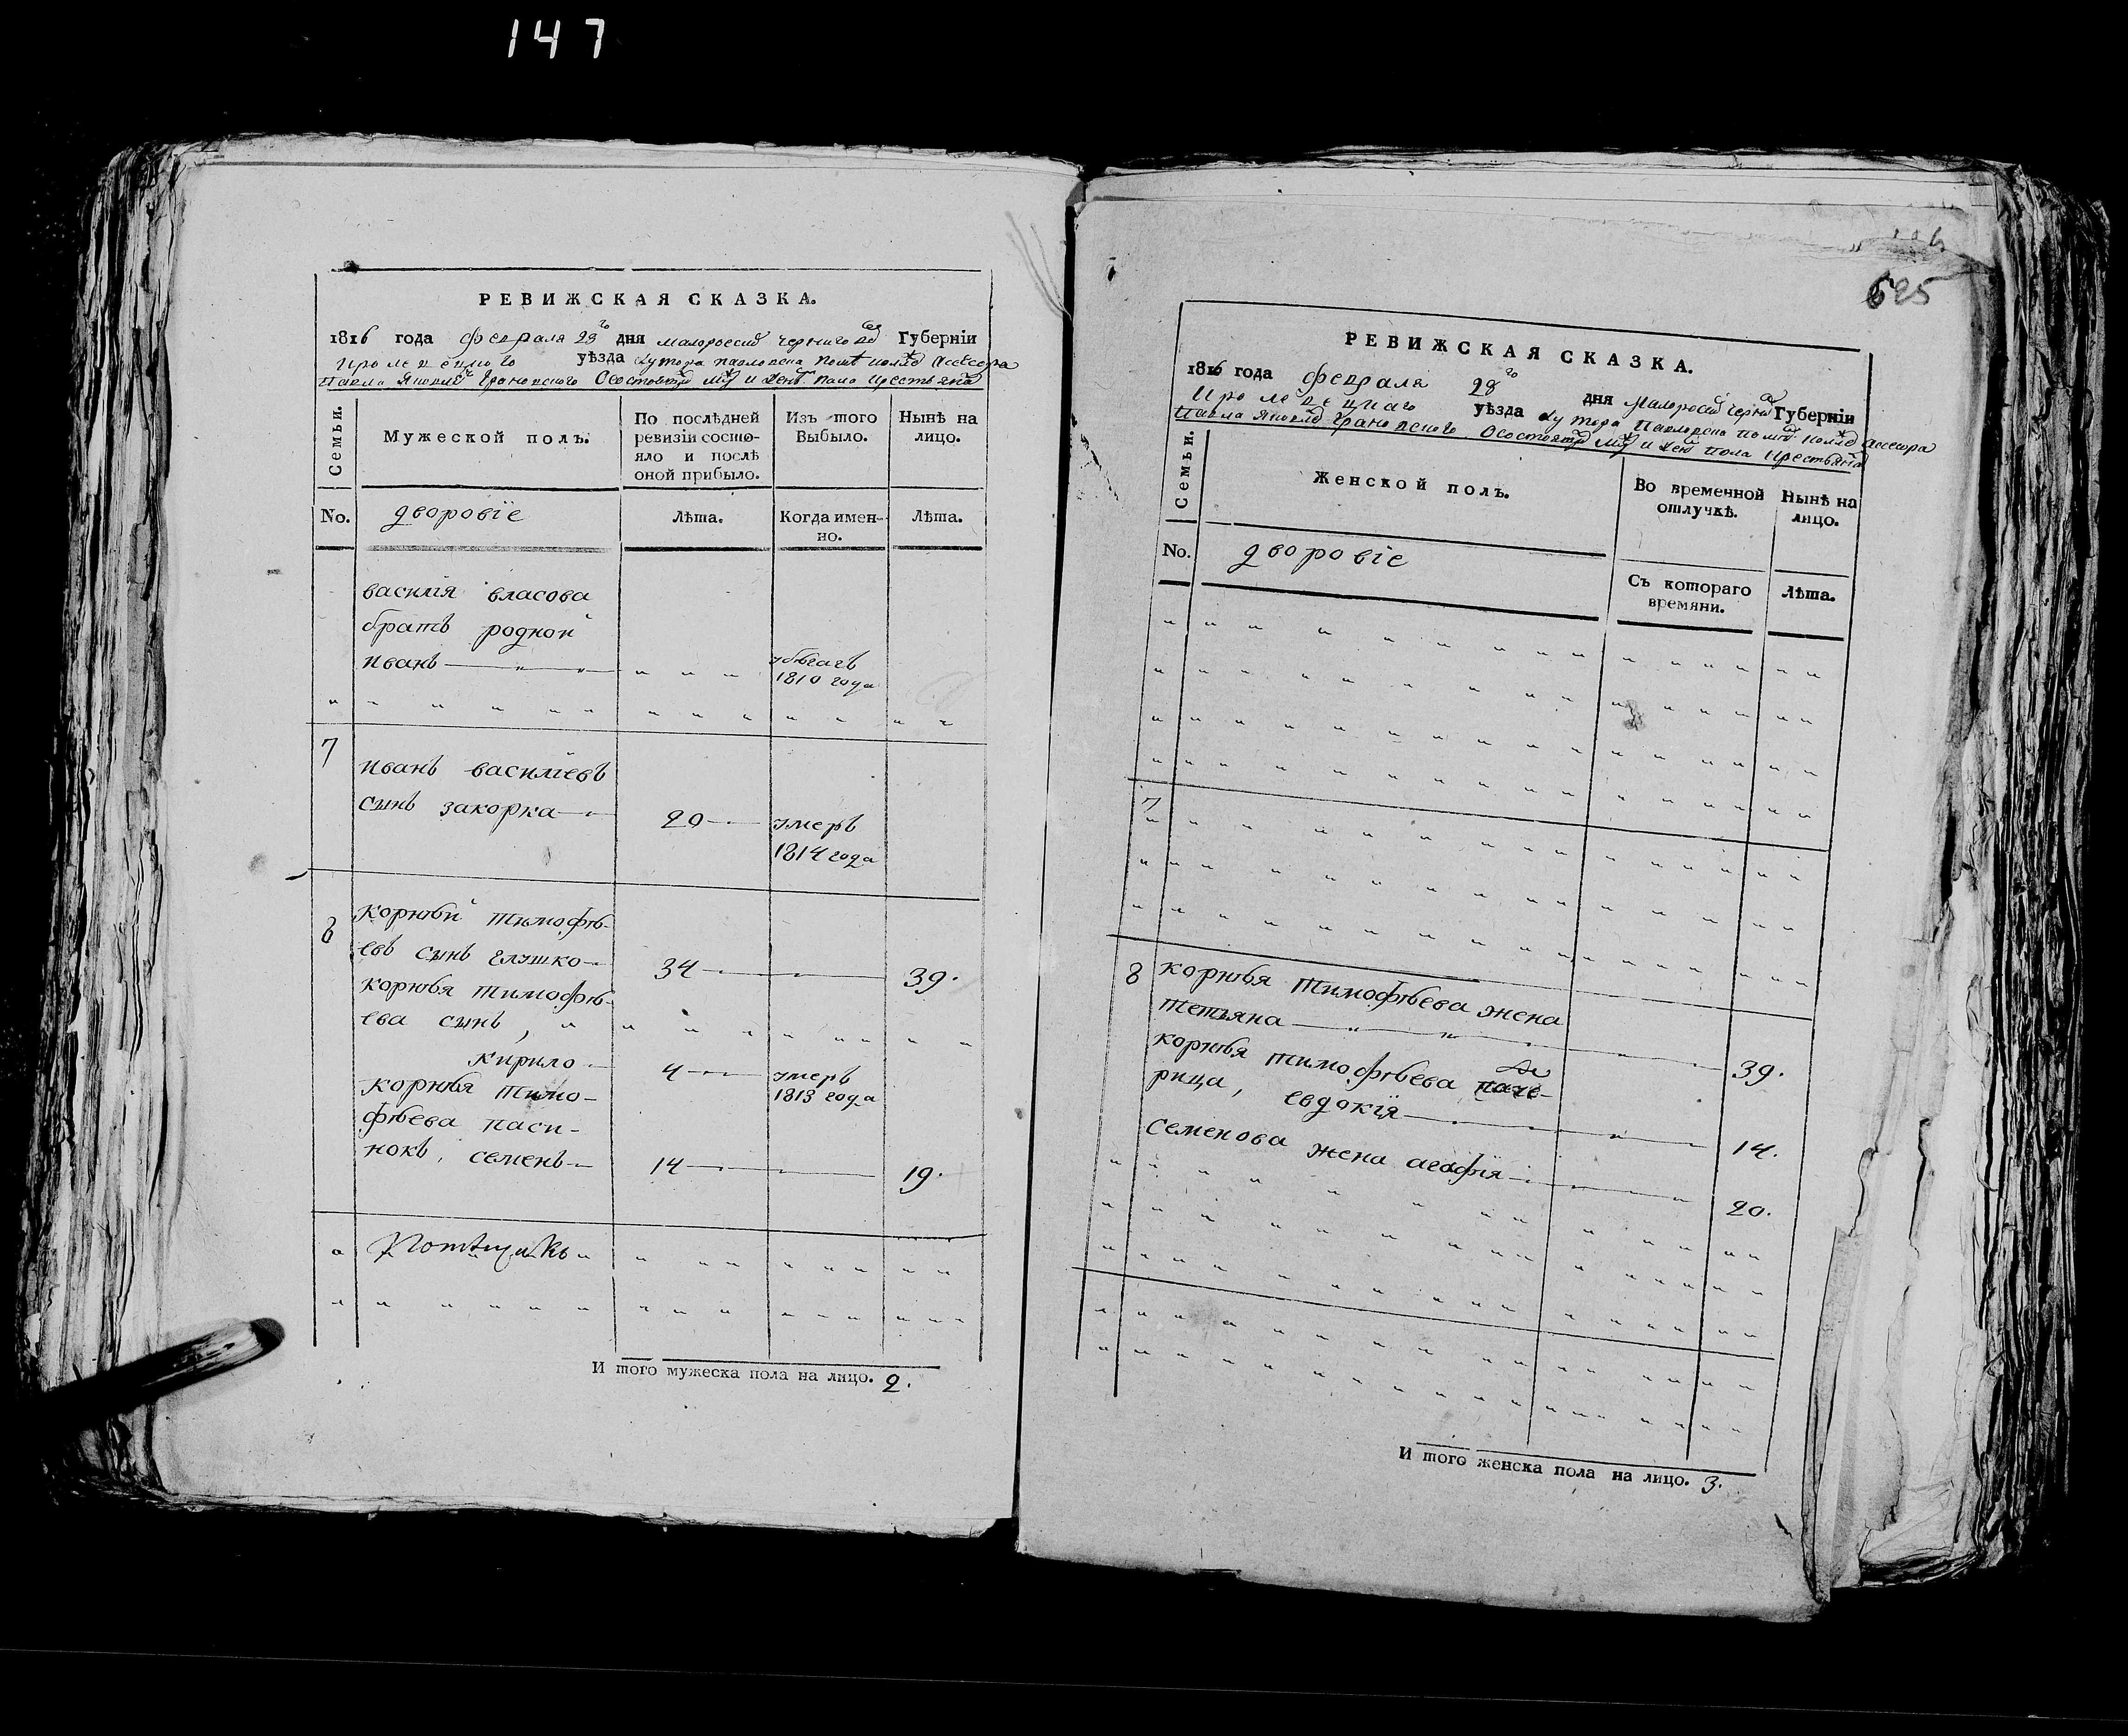 147
РЕВИЖСКАЯ СКАЗКА.
1816 года февраля 28го дня малоросий черниговской Губерніи
кролевецкого уѣзда хутора павловска помѣ колѣ асесора
Павла Яковлѣ Грановского О состоящѣ муж и женѣ пола крестьяна
Семьи.
Мужеской полъ.
По послѣдней ревизіи состояло и послѣ оной прибыло.
Изъ того Выбыло.
Нынѣ на лицо.
No.
дворовіе
Лѣта.
Когда именно.
Лѣта.
василія власова
братъ родной
иванъ
убѣгаъ
1810 года
7
иванъ василіевъ
сынъ закорка 20 умеръ
1814 года
8
корнѣй тимофѣ-
евъ сынъ глушко 34 39.
корнѣя тимофѣ-
ева сынъ,
кирило 4 умеръ
1813 года
корнѣя тимо-
фѣева паси-
нокъ, семенъ 14 19.
Потѣщикъ
И того мужеска пола на лицо. 2.
625
РЕВИЖСКАЯ СКАЗКА.
1816 года февраля 28го дня Малоросий черни Губерніи
Кролевецкаго уѣзда хутора Павловска помѣ колѣ асесора
Павла Яковлѣ Грановского О состоящѣ муж и жен пола крестьяна
Семьи.
Женской полъ.
Во временной отлучкѣ.
Нынѣ на лицо.
No.
дворовіе
Съ котораго времяни.
Лѣта.
7
8
корнѣя тимофѣева жена
тетьяна 39.
корнѣя тимофѣева паче-
рица, евдокія 14.
семенова жена агафія 20.
И того женска пола на лицо. 3.